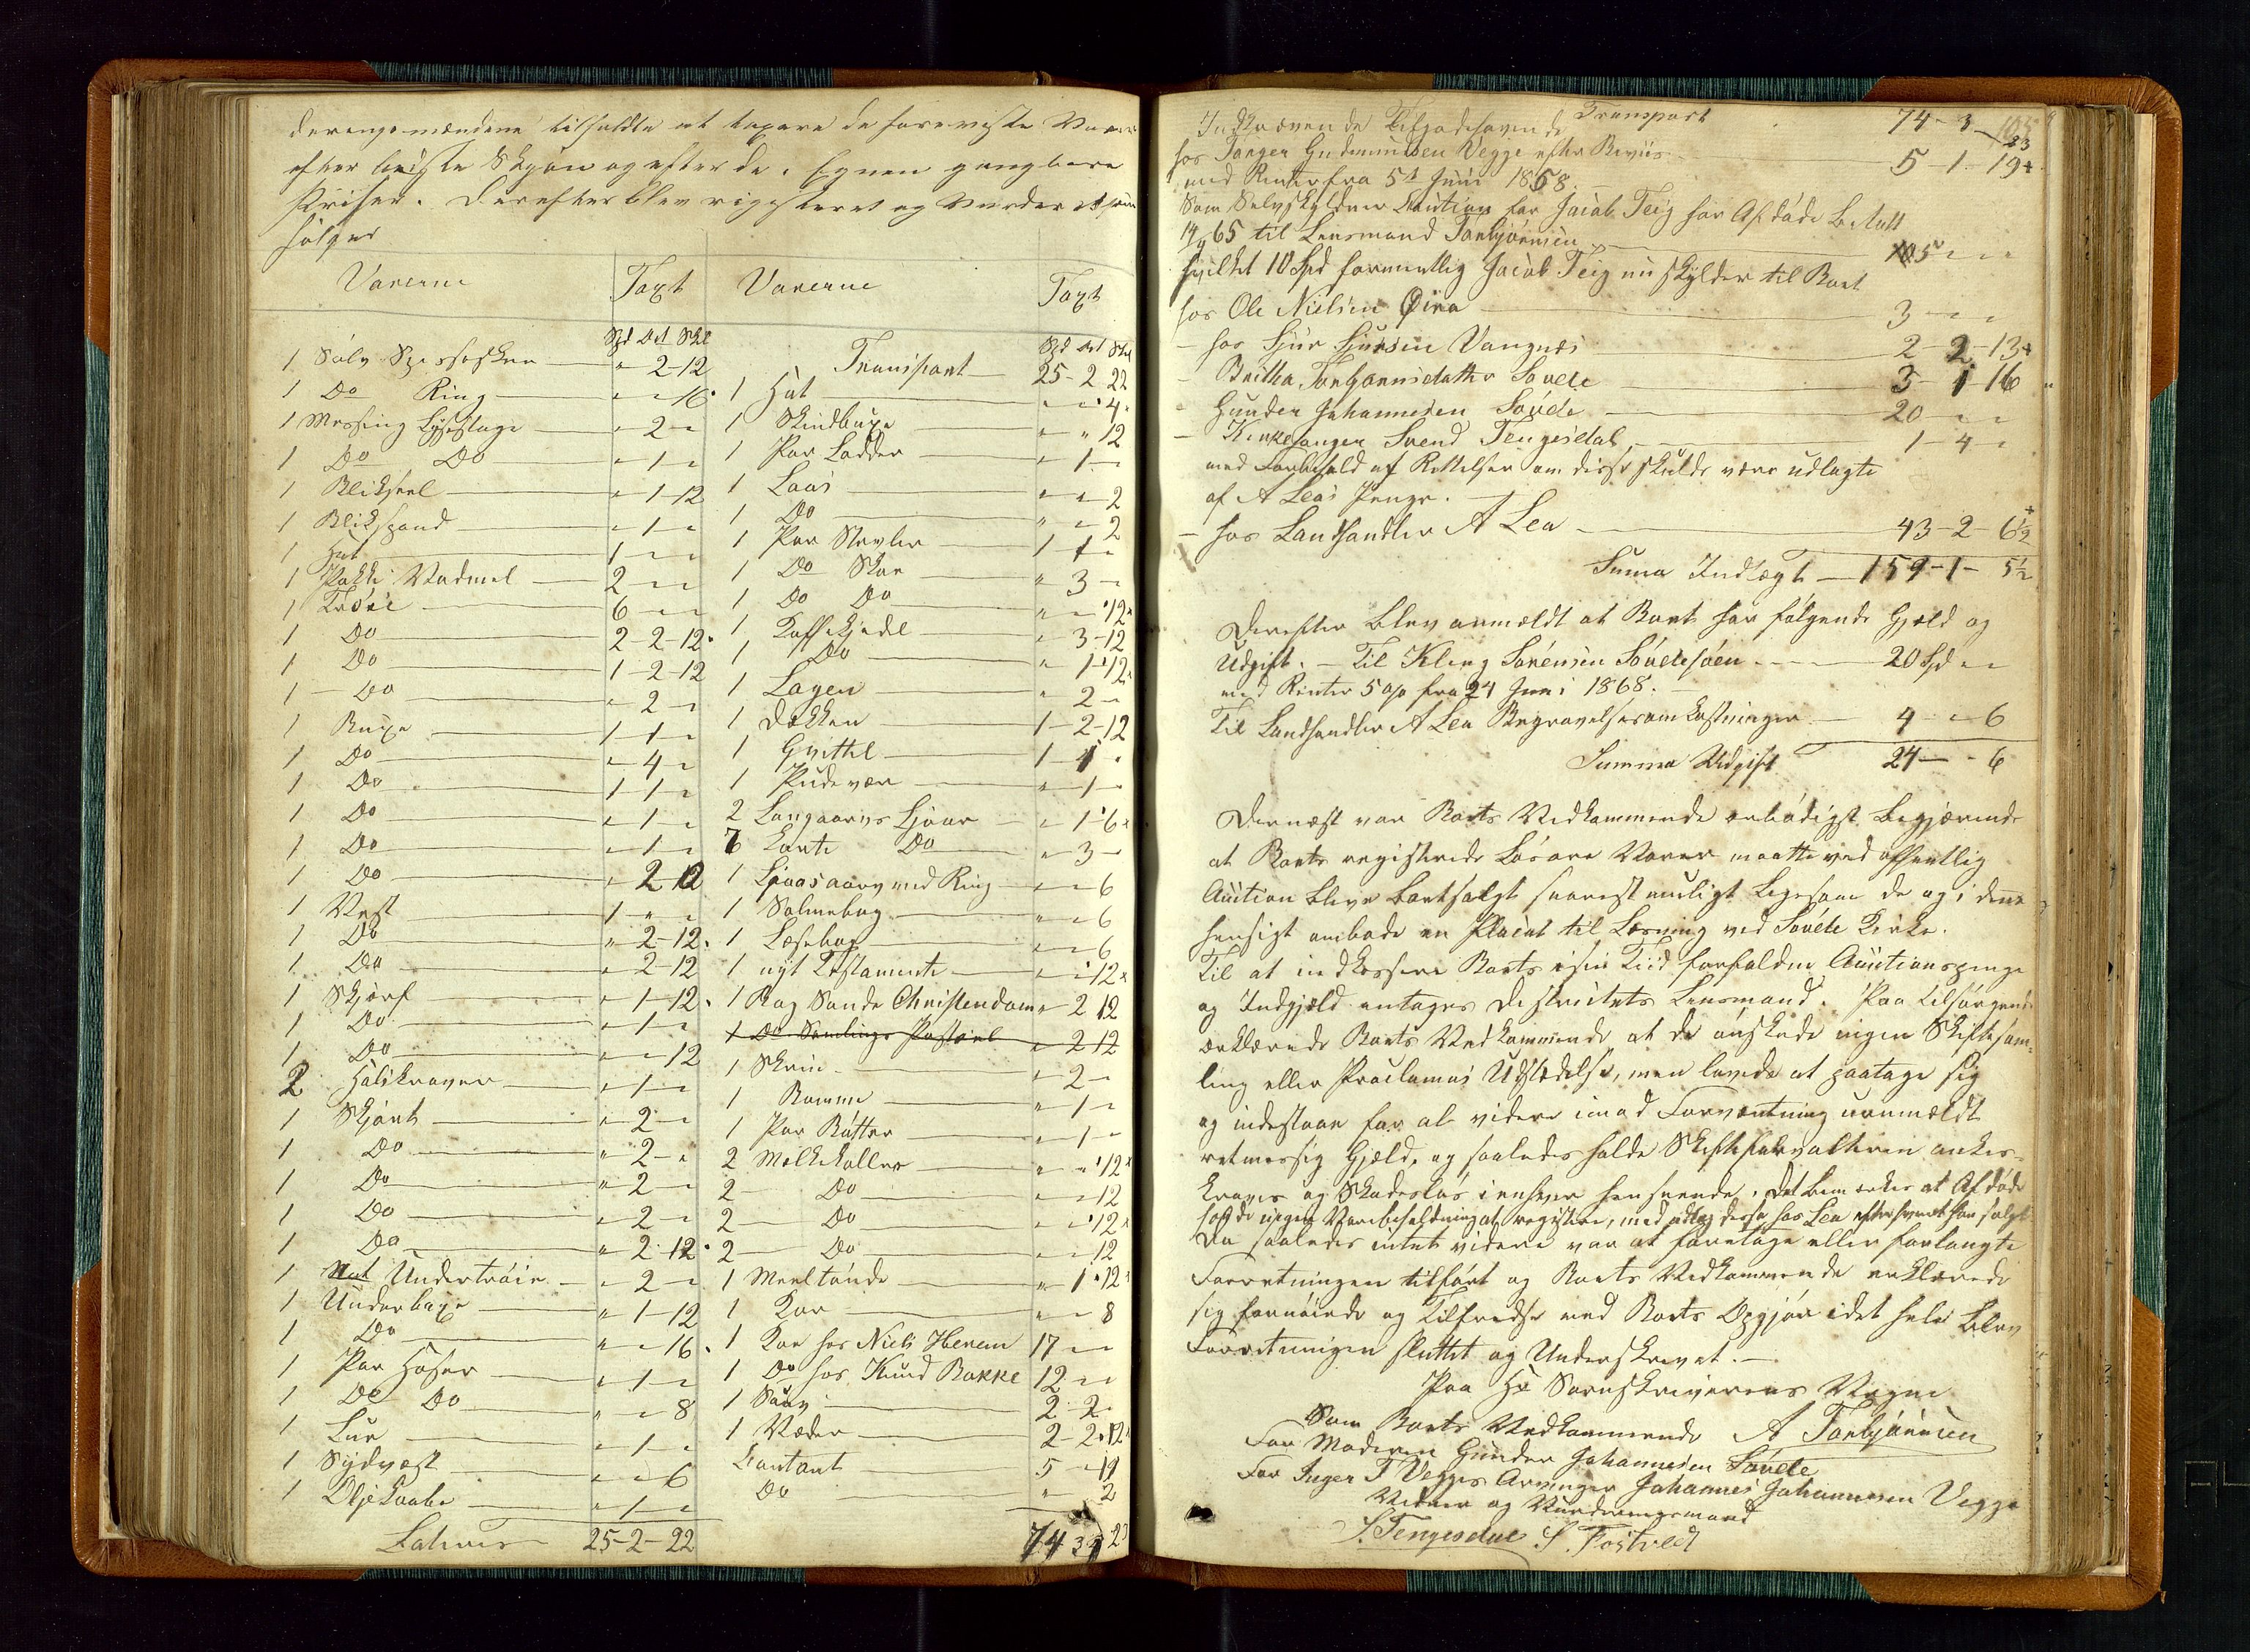 deringsmændene tilholdte at taxere de foreviste Varer
efter bedste Skjøn og efter de i Egnen gangbare
Priser. Derefter blev registeret og vurderet som
følger
Varerne Taxt
Spd Ort Skl
1 Sølv Spiseskee " 2-12
1 Do Ring " " 16
1 Messing Lysestage " 2 "
1 Do Do " 1 "
1 Blik " 1-12
1 Blikspand " 1 "
1 Hat 1 " "
1 Pakke Vadmel 2 " "
1 Trøie 6 " "
1 Do 2-2-12
1 Do 1-2-12
1 Do " 2 "
1 Buxe 1-1 "
1 Do " 4 "
1 Do 1-1 "
1 Do " 1 "
1 Do " 1 "
1 Do " 2-12
1 Vest 1 " "
1 Do " 2-12
1 Do " 2-12
1 Skjerf " 1-12
1 Do " 1 "
1 Do " " 12
2 Halskraver " 1 "
1 Skjort " 2 "
1 Do " 2 "
1 Do " 2 "
1 Do " 2 "
1 Do " 2-12
1 Undertrøie " 2 "
1 Underbuxe " 1-12
1 Do " " 16
1 Par Hoser " 1 "
1 Do Do " " 8
1 Lue " 1 "
1 Sydvest " " 6
1 Oljekaabe " 1 "
Lateris 25-2-22
Varerne Taxt
Spd Ort Skl
Transport 25-2 22
1 Hat " " 4
1 Skindbuxe " " 12
1 Par Ladder " 1 "
1 Laas " " 2
1 Do " " 2
1 Par Støvler 1 1 "
1 Do Skoe " 3 "
1 Do Do " " 12
1 Kaffekjedel " 3-12
1 Do " 1-12
1 Lagen " 2 "
1 Dækken 1-2-12
1 Hvittel 1-1 "
1 Pudevær " 1 "
2 Langaarvs Ljaar " 1-6
7 korte Do " 3 "
1 Ljaasaarv med Ring " " 6
1 Salmebog " " 6
1 Læsebog " " 6
1 nyt Testamente " " 12
1 Bog Sande Christendom " 2 12
1 Do Samlings Postill " 2 12
1 Skrin " 2 "
1 Komme " 1 "
1 Par Bøtter " 1 "
2 Melkekoller " " 12
2 Do " " 12
2 Do " " 12
2 Do " " 12
1 Meeltønde " 1-12
1 Kar " " 8
1 Koe hos Niels Herem 17 " "
1 Do hos Knud Bakke 12 " "
1 Sauv 2-2
1 Væder 2-2-12
Contant 5 " 19
Do " " 2
74 3 23
Indkrævende Tilgodehavende Transport 74-3-23
hos Torger Gudmundsen Vegge efter Beviis 5-1-19
med Renter fra 5te Juni 1868.
Som Selvskyldner Caution for Jacob Teig har Afdøde betalt
14/9 65 til Lensmand Torbjørnsen 105 " "
hvilket 10 Spd formentlig Jacob Teig nu skylder til Boet
hos Ole Nielsen Øira 3 " "
- hos Sjur Sjursen Vangnes 2-2-13
- Britha Torbjørnsdatter Søvde 3-1 16
- Gunder Johannesen Søvde 20 " "
- Kirkesanger Svend Tengesdal 1-4 "
med Forbehold af Rettelser om disse skulde være udlagte
af A Leas Penge.
- hos Landhandler A Lea 43-2-6½
Suma Indtægt 159-1-5½
Derefter blev anmældt at Boet har følgende Gjæld og
Udgift. - Til Kling Sørensen Søvdesøen 20 Spd " "
med Renter 5 o/o fra 24 Juni 1868.
Til Landhandler A Lea Begravelsesomkostninger 4 " 6
Summa Udgift 24 - - 6
Dernæst var Boets Vedkommende ærbødigst begjærende
at Boets registrerede Løsøre Varer maatte ved offentlig
Auction blive bortsolgt snarest muligt ligesom de og i denne
hensigt ombade en Placat til Læsning ved Søvde Kirke.
Til at indkassere Boets i sin Tiid forfaldne Auctionspenge
og Indgjæld antages Destrictets Lensmand. Paa tilspørgende
erklærede Boets Vedkommende at de ønskede ingen Skiftesam-
ling eller Proclamas Udstædelse, men lovede at paatage sig
og indestaae for al videre imod Forventning uanmældt
retmessig Gjæld, og saaledes holde Skifteforvalteren ankes-
kraves og Skadesløs i enhver henseende. Det bemærkes at Afdøde
hafde ingen Varebeholdning at registere, med udtag desse hos Lea efter hvad han solgt
Da saaledes intet videre var at foretage eller forlangte
Forretningen tilført og Boets Vedkommende erklærede
sig fornøiede og tilfredse med Boets Opgjør i det hele blev
Forretningen sluttet og Underskrevet. -
Paa Hr Sorenskriverens Vegne
A Torbjørnsen
Som Boets Vedkommende
For Moderen Gunder Johannesen Søvde
For Inger T Vegges Arvinger Johannes Johannesen Vegge
Vidner og Vurderingsmænd
S. Tengesdal S. Fostveit